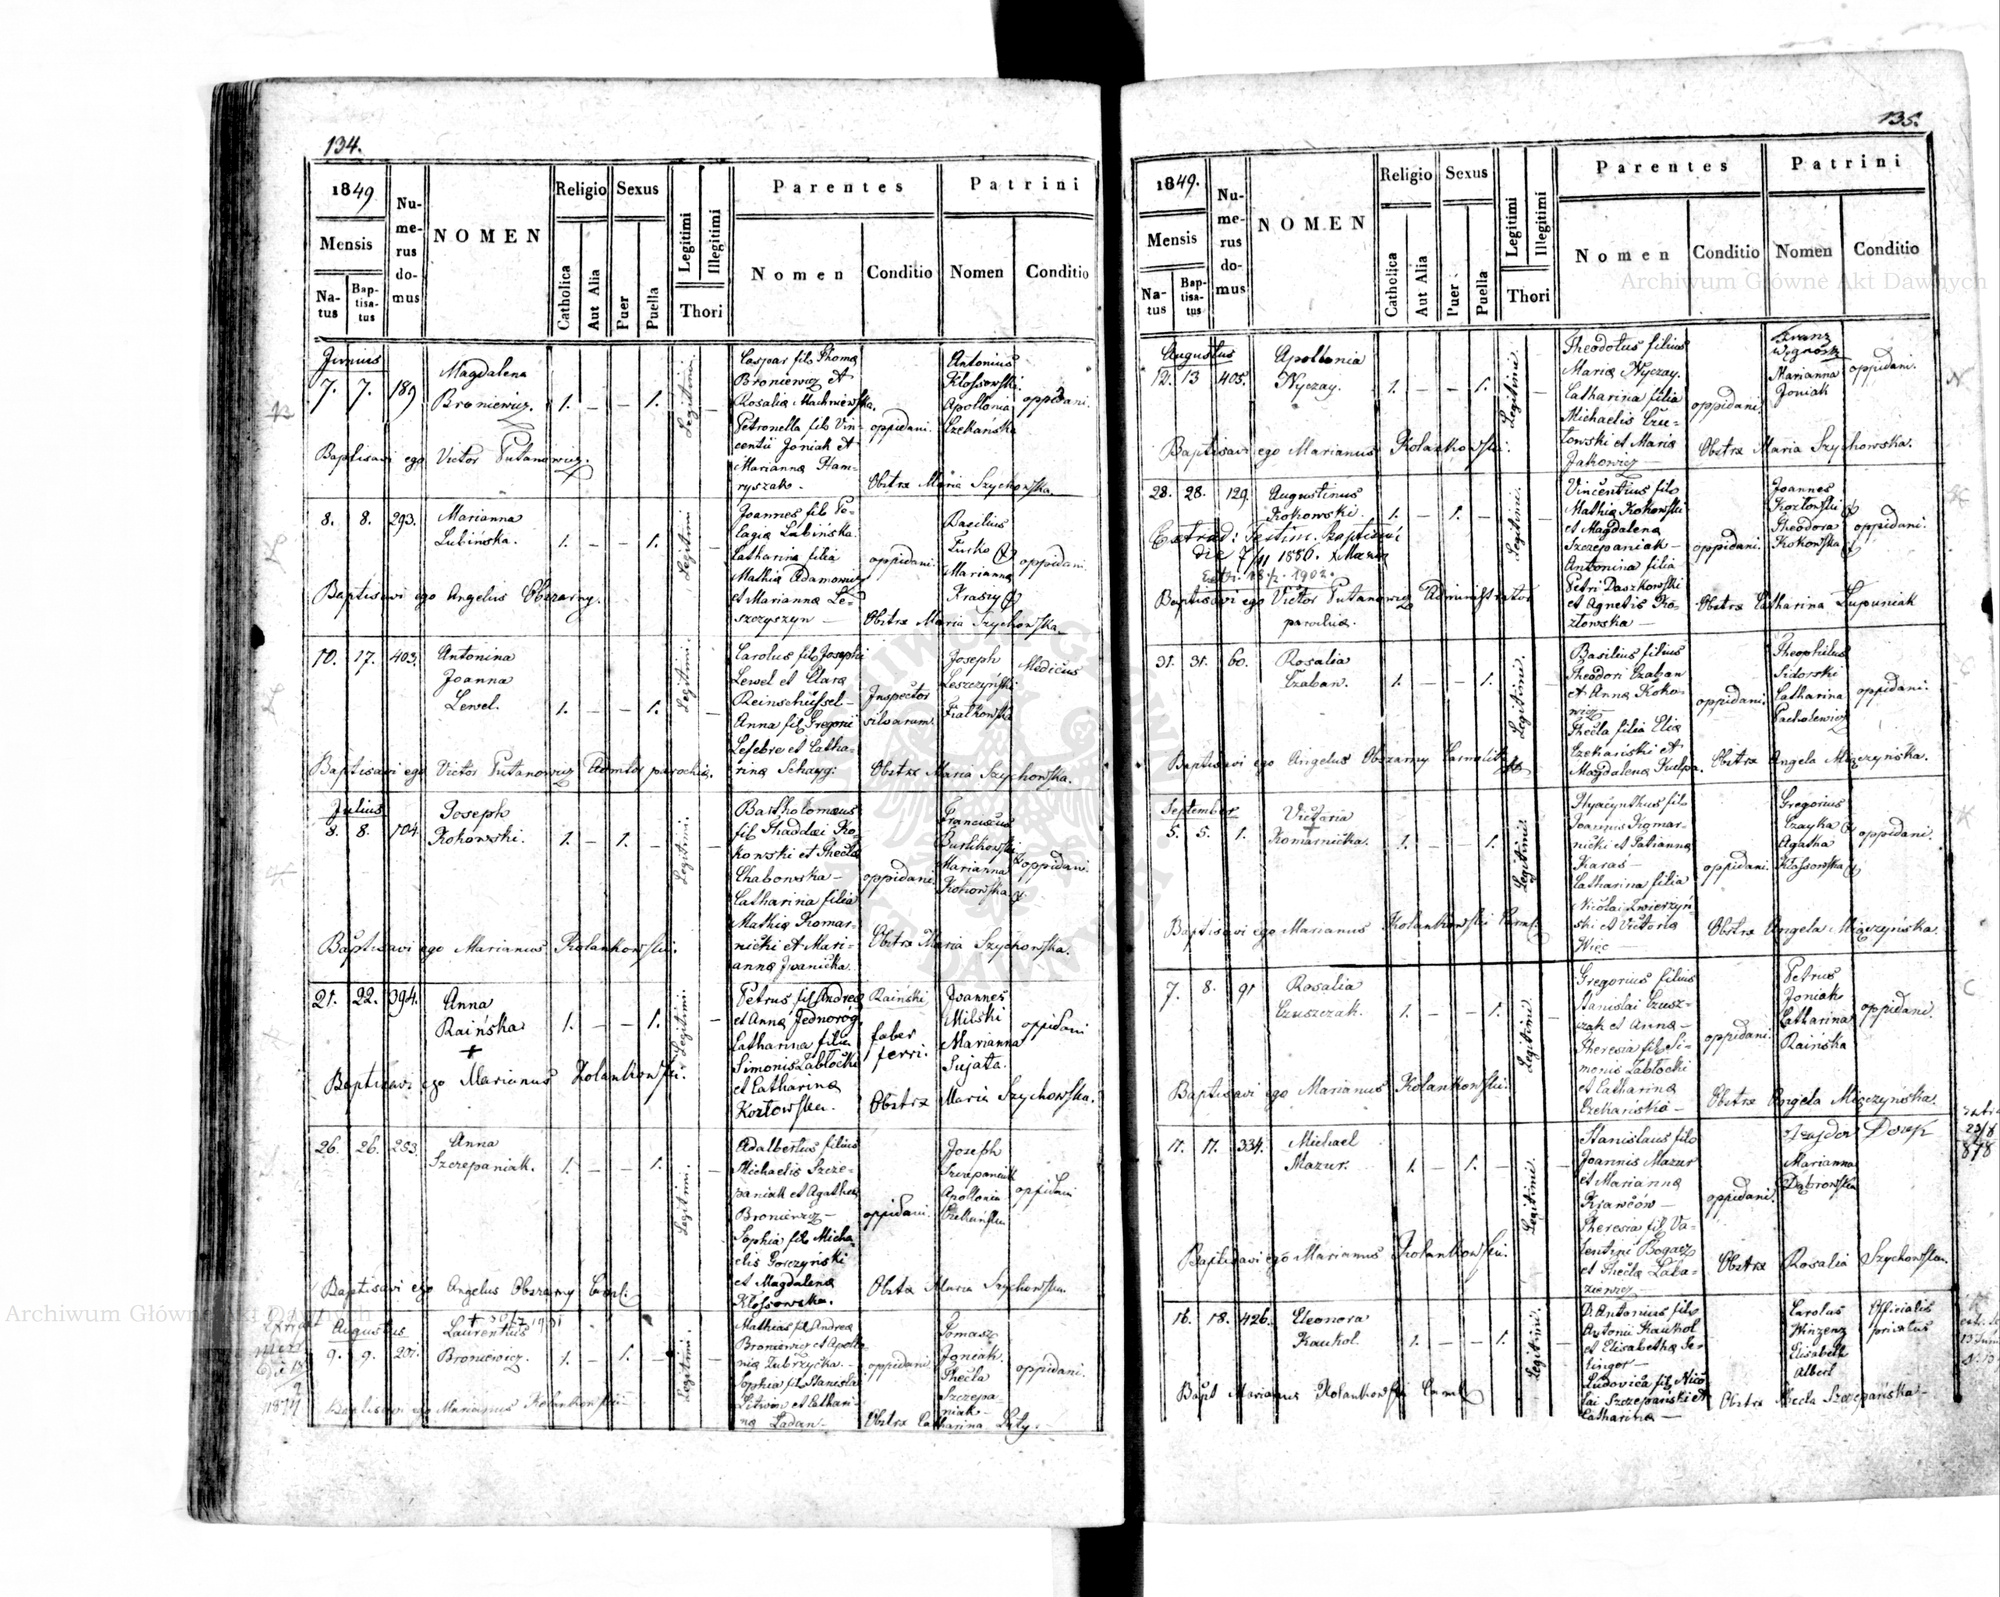 134.
1849
Numerus domus
NOMEN
Religio
Sexus
Legitimi
Illegitimi
Thori
Parentes
Patrini
Mensis
Natus
Baptisatus
Catholica
Aut Alia
Puer
Puella
Nomen
Conditio
Nomen
Conditio
Junius
7. 7. 189
Magdalena
Broniewicz.
1. – – 1.
Legitimi.
Caspar fil. Thomæ
Broniewicz et
Rosaliæ Machniewska.
Petronella fil. Vin-
centii Joniak et
Mariannæ Ham-
ryszak.
oppidani.
Antonius
Kłossowski.
Apollonia
Czekańska
oppidani.
Baptisavi ego Victor Putanowicz.
Obstrx Maria Szychowska.
8. 8. 293.
Marianna
Lubińska.
1. – – 1.
Legitimi
Joannes fil. Pe-
lagiæ Lubińska.
Catharina filia
Mathiæ Adamowicz
et Mariannæ Le-
szczyszyn –
oppidani.
Basilius
Turko
Marianna
Kraszy
oppidani.
Baptisavi ego Angelus Obzarny.
Obstrx Maria Szychowska.
10. 17. 403.
Antonina
Joanna
Lewel.
1. – – 1.
Legitimi.
Carolus fil. Josephi
Lewel et Claræ
Reinschüssel –
Anna fil. Gregorii
Lefebre et Catha-
rinæ Schayg.
Inspector
silvarum.
Joseph
Leszczyński
Fiałkowska
Medicus
Baptisavi ego Victor Putanowicz Admtor parochiæ.
Obstrx Maria Szychowska.
Julius
8. 8. 104.
Joseph
Kokowski.
1. – 1. –
Legitimi.
Bartholomæus
fil. Thaddæi Ko-
kowski et Theclæ
Chabowska –
Catharina filia
Mathiæ Komar-
nicki et Mari-
annæ Iwanicka.
oppidani.
Franciscus
Burlikowski
Marianna
Kokowska
oppidani.
Baptisavi ego Marianus Kolankowski.
Obstrx Maria Szychowska.
21. 22. 394.
Anna
Raińska
1. – – 1.
Legitimi.
Petrus fil. Andreæ
et Annæ Jednoróg
Catharina filia
Simonis Zabłocki
et Catharinæ
Kozłowska.
Rainski
faber
ferri.
Joannes
Milski
Marianna
Sujata.
oppidani
Baptisavi ego Marianus Kolankowski.
Obstrx Maria Szychowska.
26. 26. 253.
Anna
Szczepaniak.
1. – – 1.
Legitimi.
Adalbertus filius
Michaelis Szcze-
paniak et Agathæ
Broniewicz –
Sophia fil. Micha-
elis Gorczyński
et Magdalenæ
Kłossowska.
oppidani.
Joseph
Szczepaniak
Apollonia
Czekańska
oppidani
Baptisavi ego Angelus Obzarny Carml.
Obstrx Maria Szychowska.
Augustus
9. 9. 201.
Laurentius
Broniewicz.
1. – 1. –
Legitimi.
Mathias fil. Andreæ
Broniewicz et Apollo-
niæ Zubrzycka. –
Sophia fil. Stanislai
Litwin et Cathari-
næ Ladan –
oppidani.
Tomasz
Joniak.
Thecla
Szczepa-
niak –
oppidani.
Baptisavi ego Marianus Kolankowski
Obstrx Catharina Puty.
135.
1849.
Numerus domus
NOMEN
Religio
Sexus
Legitimi
Illegitimi
Thori
Parentes
Patrini
Mensis
Natus
Baptisatus
Catholica
Aut Alia
Puer
Puella
Nomen
Conditio
Nomen
Conditio
Augustus
12. 13 405.
Apollonia
Nyczay.
1. – – 1.
Legitimi.
Theodotus filius
Mariæ Nyczay.
Catharina filia
Michaelis Czu-
towski et Mariæ
Jatkowicz
oppidani.
Franz
Marianna
Joniak
oppidani.
Baptisavi ego Marianus Kolankowski.
Obstrx Maria Szychowska.
28. 28. 129.
Augustinus
Kokowski.
1. – 1. –
Legitimi.
Vincentius fil.
Mathiæ Kokowski
et Magdalenæ
Szczepaniak –
Antonina filia
Petri Daszkowski
et Agnetis Ko-
złowska –
oppidani.
Joannes
Kozłowski
Theodora
Kokowska
oppidani.
Extrad: Testim. Baptismi
die 7/11 1886.
Baptisavi ego Victor Putanowicz Administrator
parochiæ.
Obstrx Catharina Łupuniak
31. 31. 60.
Rosalia
Czaban.
1. – – 1.
Legitimi.
Basilius filius
Theodori Czaban
et Annæ Koko-
wicz –
Thecla filia Eliæ
Czekański et
Magdalenæ Kulpa.
oppidani.
Theophilus
Sidorski
Catharina
Pacholewicz
oppidani.
Baptisavi ego Angelus Obzarny Carmelita
Obstrx Angela Mięczyńska.
September
5. 5. 1.
Victoria
Komarnicka.
1. – – 1.
Legitimi.
Hyacynthus fil.
Joannis Komar-
nicki et Tatiannæ
Karaś –
Catharina filia
Nicolai Zwierzyń-
ski et Victoriæ
Więc –
oppidani.
Gregorius
Czayka
Agatha
Kłossowska
oppidani.
Baptisavi ego Marianus Kolankowski Carml.
Obstrx Angela Mięczyńska.
7. 8. 91
Rosalia
Czuszczak.
1. – – 1.
Legitimi.
Gregorius filius
Stanislai Czusz-
czak et Annæ –
Theresia fil. Si-
monis Zabłocki
et Catharinæ
Czekańska –
oppidani.
Petrus
Joniak
Catharina
Rainska
oppidani.
Baptisavi ego Marianus Kolankowski.
Obstrx Angela Mięczyńska.
17. 17. 334.
Michael
Mazur.
1. – 1. –
Legitimi.
Stanislaus fil.
Joannis Mazur
et Mariannæ
Krawców –
Theresia fil. Va-
lentini Bogacz
et Theclæ Łaka-
ziewicz –
oppidani.
Marianna
Dąbrowska
Baptisavi ego Marianus Kolankowski.
Obstrx Rosalia Szychowska.
16. 18. 426.
Eleonora
Kaukol.
1. – – 1.
Legitimi.
D. Antonius fil.
Antonii Kaukol
et Elisabethæ Se-
linger –
Ludovica fil. Nico-
lai Szczepański et
Catharinæ –
Carolus
Winzenz
Elisabeth
Albert
Officialis
privatus
Bapt Marianus Kolankowski Carml
Obstrx Thecla Szczepańska –
Archiwum Główne Akt Dawnych
Archiwum Główne Akt Dawnych